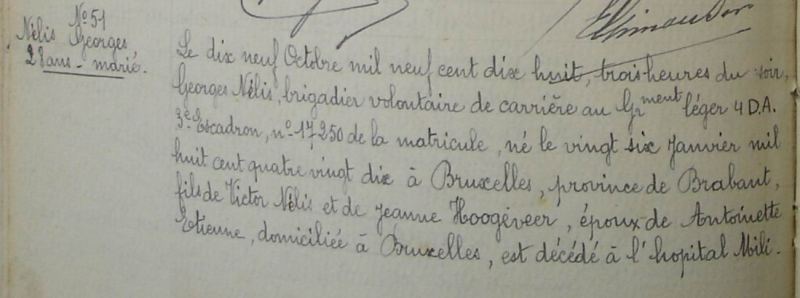 Nº 51
Nélis Georges,
28 ans - marié.
Le dix neuf Octobre mil neuf cent dix huit, trois heures du soir,
Georges Nélis, brigadier volontaire de carrière au Grment léger 4 D.A.
3e Escadron, nº 17250 de la matricule, né le vingt six Janvier mil
huit cent quatre vingt dix à Bruxelles, province de Brabant,
fils de Victor Nélis et de Jeanne Hoogéveer, époux de Antoinette
Etienne, domiciliée à Bruxelles, est décédé à l'hopital Mili-